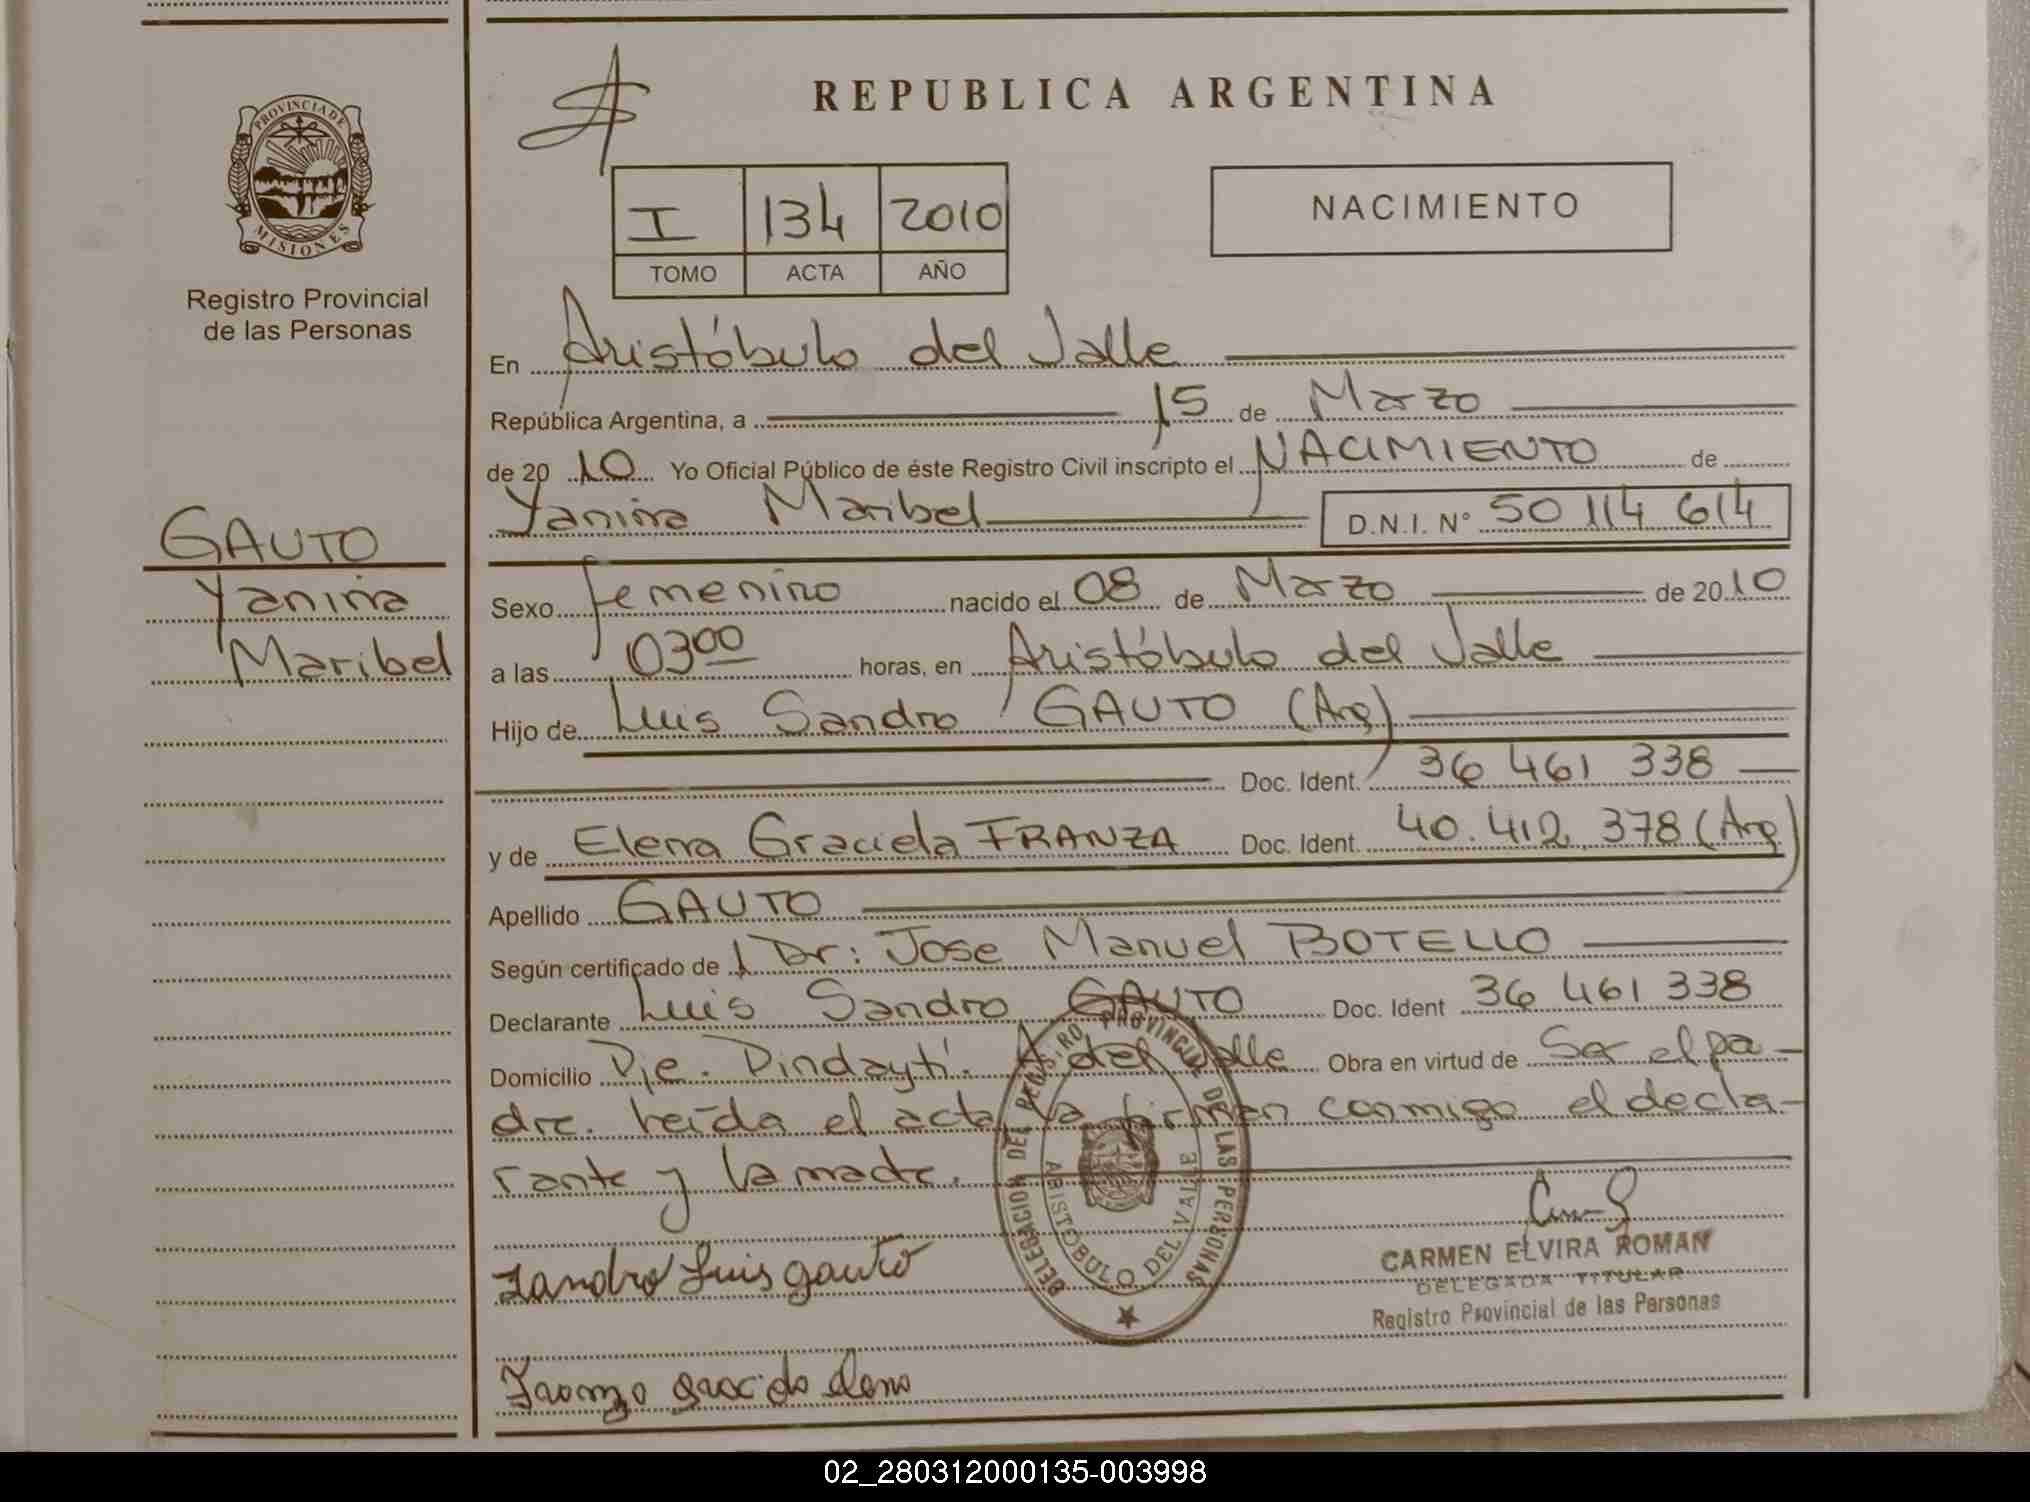 REPUBLICA ARGENTINA
PROVINCIA DE
MISIONES
Registro Provincial
de las Personas
I 134 2010
TOMO ACTA AÑO
NACIMIENTO
En Aristóbulo del Valle
República Argentina, a 15 de Marzo
de 20 10 Yo Oficial Público de éste Registro Civil inscripto el NACIMIENTO de
Yanina Maribel D.N.I. N° 50 114 614
GAUTO
Yanina
Maribel
Sexo femenino nacido el 08 de Marzo de 20 10
a las 03 00 horas, en Aristóbulo del Valle
Hijo de Luis Sandro GAUTO (Arg)
Doc. Ident. 36 461 338
y de Elena Graciela FRANZA Doc. Ident. 40.412.378 (Arg)
Apellido GAUTO
Según certificado de Dr: Jose Manuel BOTELLO
Declarante Luis Sandro GAUTO Doc. Ident 36 461 338
Domicilio Pje. Pindaytí. A del Valle Obra en virtud de Ser el pa-
dre. Leída el acta, la firman conmigo el decla-
rante y la madre.
DELEGACION DEL REGISTRO PROVINCIAL DE LAS PERSONAS
ARISTOBULO DEL VALLE
CARMEN ELVIRA ROMAN
DELEGADA TITULAR
Registro Provincial de las Personas
Sandro Luis gauto
Franza graciela elena
02_280312000135-003998